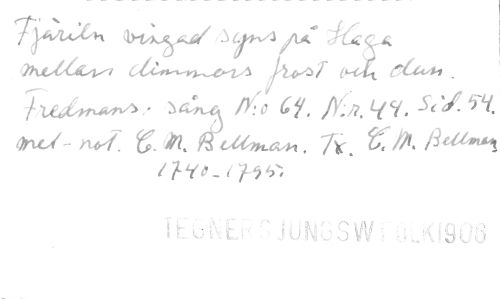 Fjäriln vingad syns på Haga
mellan dimmors frost och dun.
Fredmans sång N:o 64. N:r. 44. Sid. 54.
mel-not. C. M. Bellman. Tx. C. M. Bellman
1740-1795.
TEGNER SJUNGSVTFOLK1906